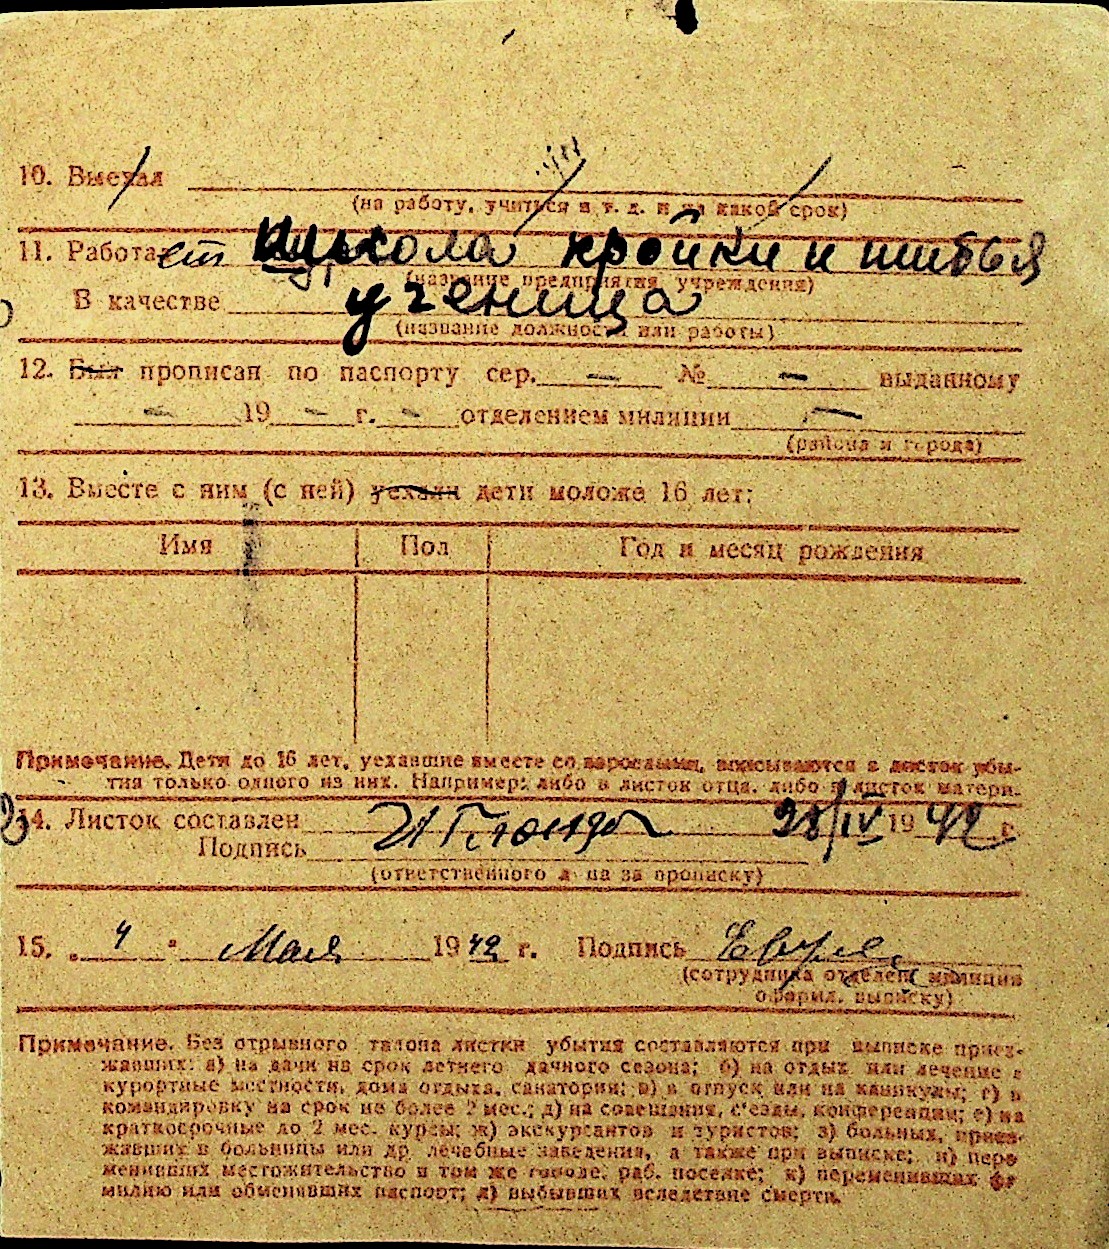 10. Выехал
(на работу, учиться и т. д. и на какой срок)
11. Работает школа кройки и шитья
(название предприятия учреждения)
В качестве ученица
(название должности или работы)
12. Был прописан по паспорту сер. — № — выданному
— 19 — г. — отделением милиции —
(района и города)
13. Вместе с ним (с ней) уехали дети моложе 16 лет:
Имя Пол Год и месяц рождения
Примечание. Дети до 16 лет, уехавшие вместе со взрослыми, вписываются в листок убы-
тия только одного из них. Например: либо в листок отца, либо в листок матери.
14. Листок составлен 28/IV 1942 г.
Подпись
(ответственного лица за прописку)
15. „4" Мая 1942 г. Подпись
(сотрудника отделен. милиции
оформл. выписку)
Примечание. Без отрывного талона листки убытия составляются при выписке приез-
жавших: а) на дачи на срок летнего дачного сезона; б) на отдых или лечение в
курортные местности, дома отдыха, санатории; в) в отпуск или на каникулы; г) в
командировку на срок не более 2 мес.; д) на совещания, с'езды, конференции; е) на
краткосрочные до 2 мес. курсы; ж) экскурсантов и туристов; з) больных, приез-
жавших в больницы или др. лечебные заведения, а также при выписке; и) пере
менивших местожительство в том же городе, раб. поселке; к) переменивших фа
милию или обменявших паспорт; л) выбывших вследствие смерти.